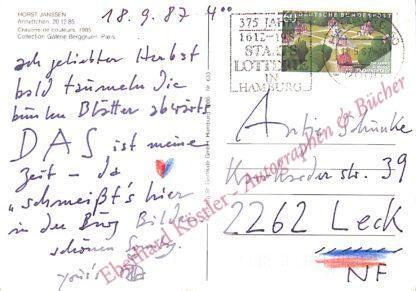 HORST JANSSEN
Annettchen, 20.12.85
Crayons de couleurs, 1985
Collection Galerie Berggruen Paris
18.9.87
ach geliebter Herbst
bald taumeln die
bunten Blätter abwärts
DAS ist meine
Zeit – da
"schmeißt's hier
in der Burg Bilder
schönen
375 JAHRE
1612-1987
STAATS
LOTTERIE
IN
HAMBURG
DEUTSCHE BUNDESPOST
Antje
39
2262 Leck
NF
Eberhard Köstler - Autographen & Bücher